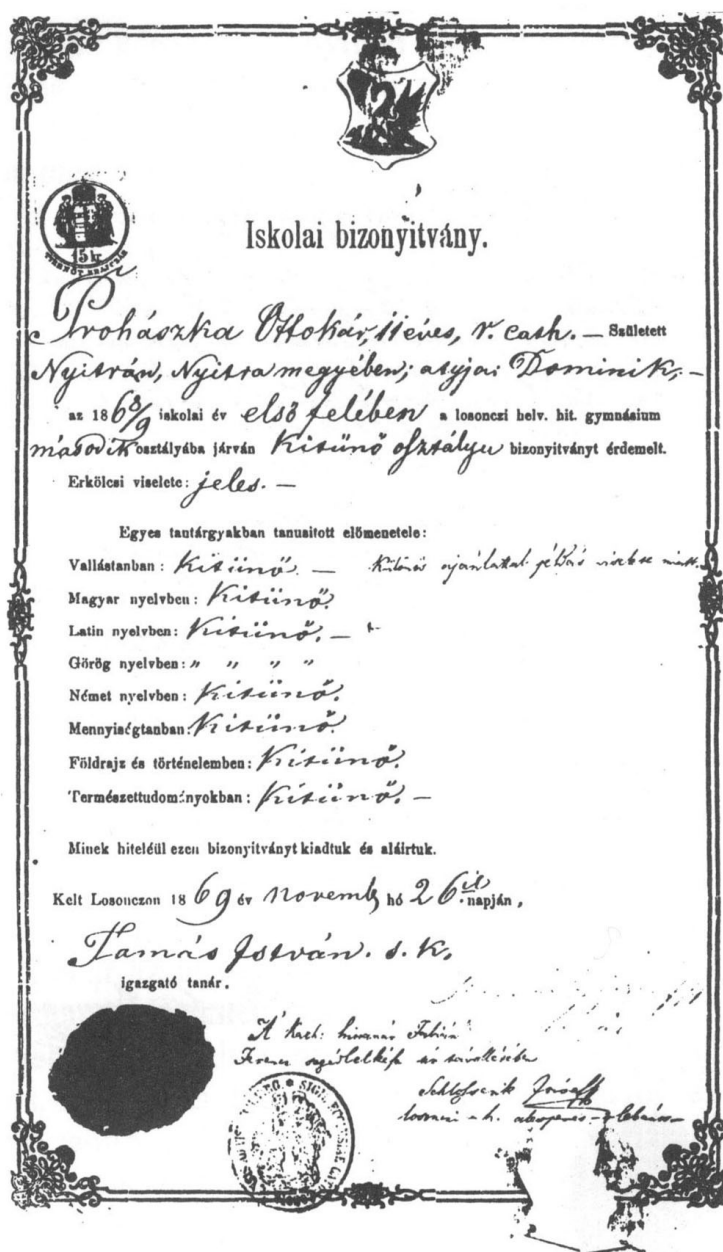 15 kr
Iskolai bizonyitvány.
Prohászka Ottokár, 11 éves, r. cath. — Született
Nyitrán, Nyitra megyében; atyja: Dominik, —
az 1868/9 iskolai év első felében a losonczi helv. hit. gymnásium
második osztályába járván Kitünő osztályu bizonyitványt érdemelt.
Erkölcsi viselete: jeles. —
Egyes tantárgyakban tanusitott előmenetele:
Vallástanban: Kitünő. — Különös ajánlattal
Magyar nyelvben: Kitünő.
Latin nyelvben: Kitünő. —
Görög nyelvben: „ „ „ „
Német nyelvben: Kitünő.
Mennyiségtanban: Kitünő.
Földrajz és történelemben: Kitünő.
Természettudományokban: Kitünő. —
Minek hiteléül ezen bizonyitványt kiadtuk és aláirtuk.
Kelt Losonczon 1869 év novemb hó 26ik napján,
Tamás István. s. k.
igazgató tanár.
Ferencz segédlelkész úr távollétében
József
losonczi
SIGIL